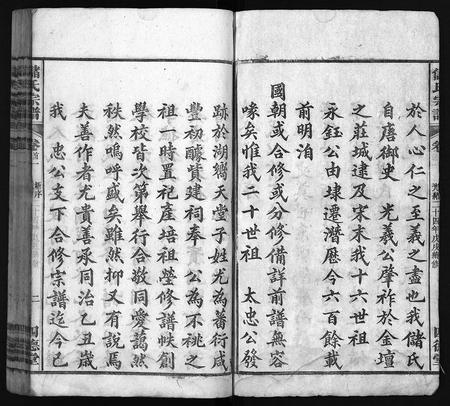 於人心仁之至義之盡也我儲氏
自唐御史 光羲公肇祚於金壇
之莊城逮及宋末我十六世祖
永鈺公由埭遷潛歷今六百餘載
前明洎
國朝或合修或分修備詳前譜無容
喙矣惟我二十世祖 太忠公發
跡於湖嚮天堂子姓尤為蕃衍咸
豐初醵貲建祠奉 公為不祧之
祖一時置祀產培祖塋修譜帙創
學校皆次第舉行合敬同愛藹然
秩然嗚呼盛矣雖然抑又有說焉
夫善作者尤貴善承同治乙丑歲
我 忠公支下合修宗譜迄今已
儲氏宗譜
卷首
二